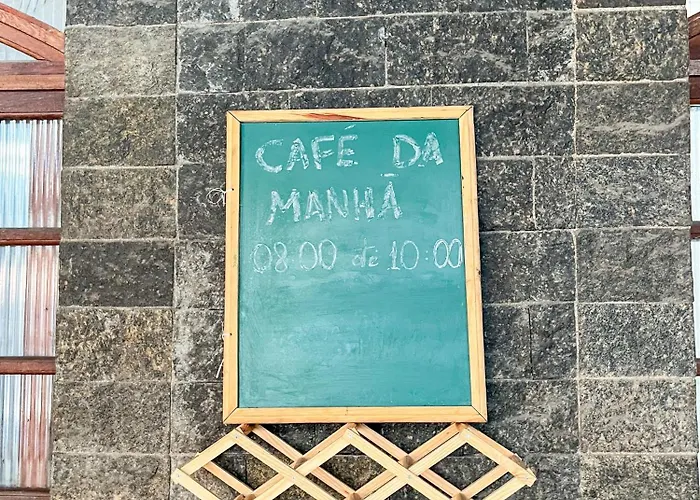 CAFÉ DA
MANHÃ
08:00 às 10:00